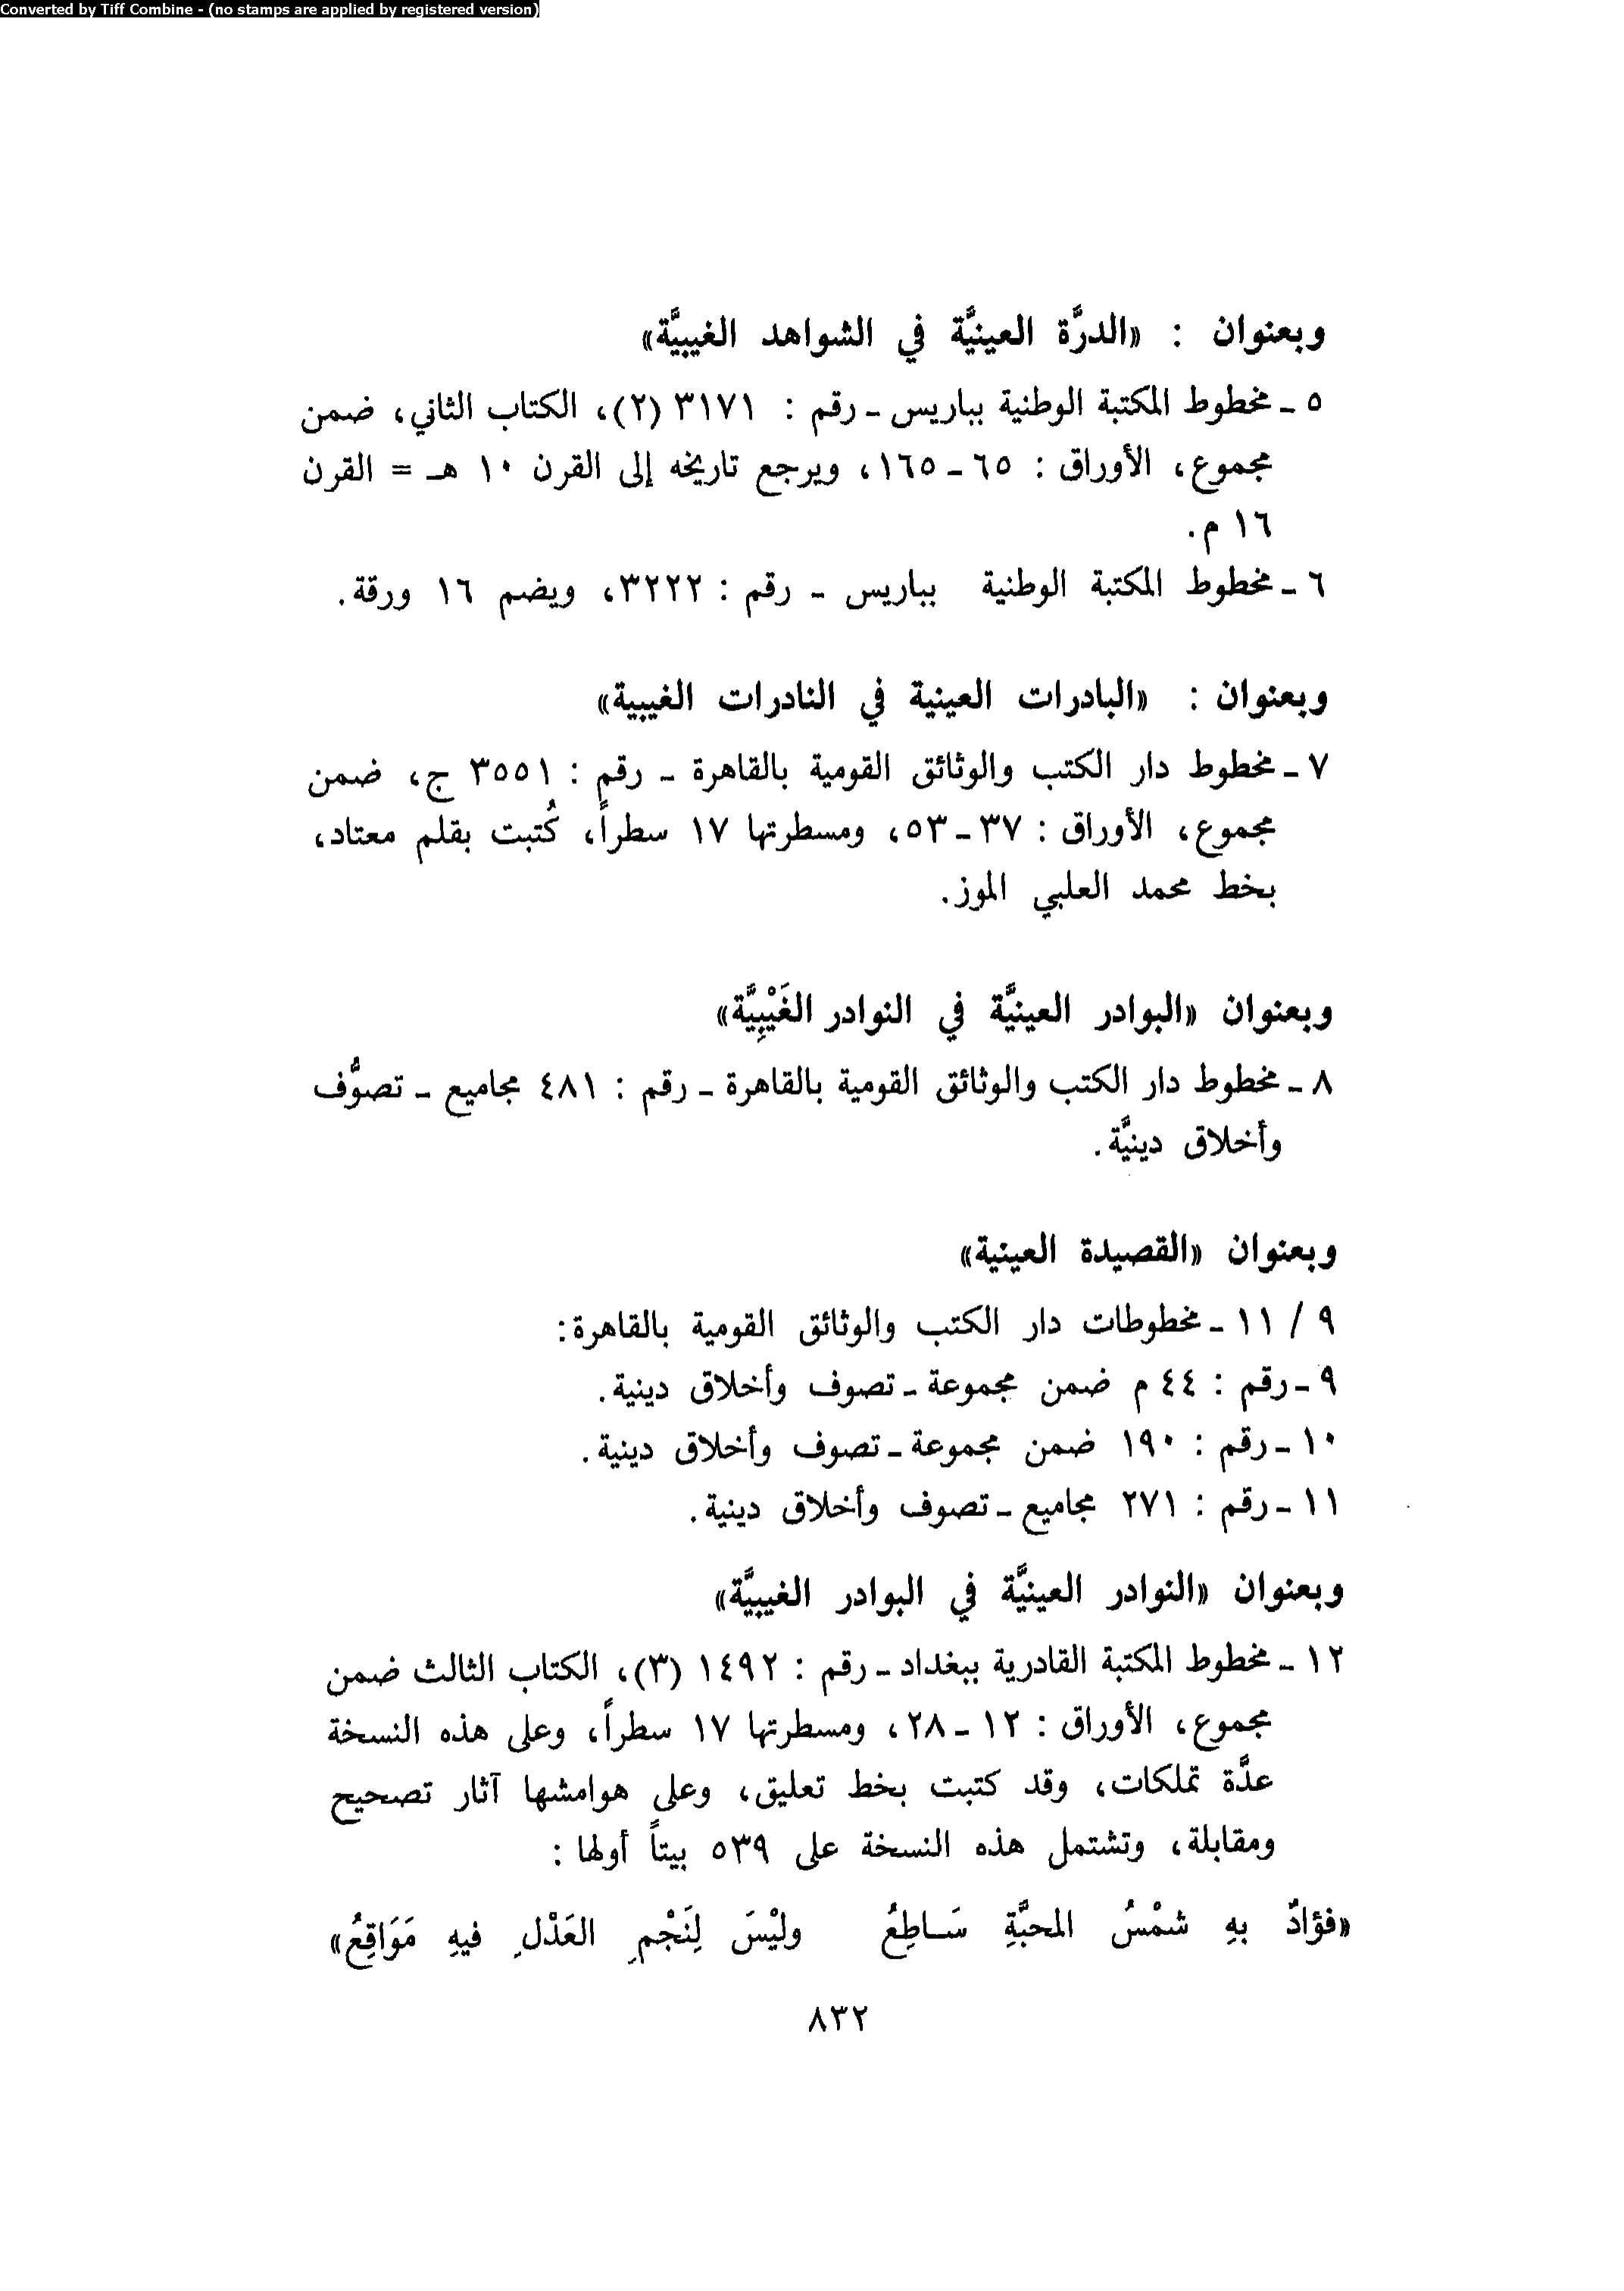 Converted by Tiff Combine - (no stamps are applied by registered version)
وبعنوان : «الدرَّة العينيَّة في الشواهد الغيبيَّة»
٥ - مخطوط المكتبة الوطنية بباريس - رقم : ٣١٧١ (٢)، الكتاب الثاني، ضمن
مجموع، الأوراق : ٦٥ - ١٦٥، ويرجع تاريخه إلى القرن ١٠ هـ = القرن
١٦ م.
٦ - مخطوط المكتبة الوطنية بباريس - رقم : ٣٢٢٢، ويضم ١٦ ورقة.
وبعنوان : «البادرات العينية في النادرات الغيبية»
٧ - مخطوط دار الكتب والوثائق القومية بالقاهرة - رقم : ٣٥٥١ ج، ضمن
مجموع، الأوراق : ٣٧ - ٥٣، ومسطرتها ١٧ سطراً، كُتبت بقلم معتاد،
بخط محمد العلبي الموز.
وبعنوان «البوادر العينيَّة في النوادر الغَيْبِيَّة»
٨ - مخطوط دار الكتب والوثائق القومية بالقاهرة - رقم : ٤٨١ مجاميع - تصوُّف
وأخلاق دينيَّة.
وبعنوان «القصيدة العينية»
٩ / ١١ - مخطوطات دار الكتب والوثائق القومية بالقاهرة:
٩ - رقم : ٤٤ م ضمن مجموعة - تصوف وأخلاق دينية.
١٠ - رقم : ١٩٠ ضمن مجموعة - تصوف وأخلاق دينية.
١١ - رقم : ٢٧١ مجاميع - تصوف وأخلاق دينية.
وبعنوان «النوادر العينيَّة في البوادر الغيبيَّة»
١٢ - مخطوط المكتبة القادرية ببغداد - رقم : ١٤٩٢ (٣)، الكتاب الثالث ضمن
مجموع، الأوراق : ١٢ - ٢٨، ومسطرتها ١٧ سطراً، وعلى هذه النسخة
عدَّة تملكات، وقد كتبت بخط تعليق، وعلى هوامشها آثار تصحيح
ومقابلة، وتشتمل هذه النسخة على ٥٣٩ بيتاً أولها :
«فؤادٌ بهِ شمْسُ المحبَّةِ سَـاطِعُ وليْسَ لِنَجْمِ العَذْلِ فيهِ مَوَاقِعُ»
٨٣٢